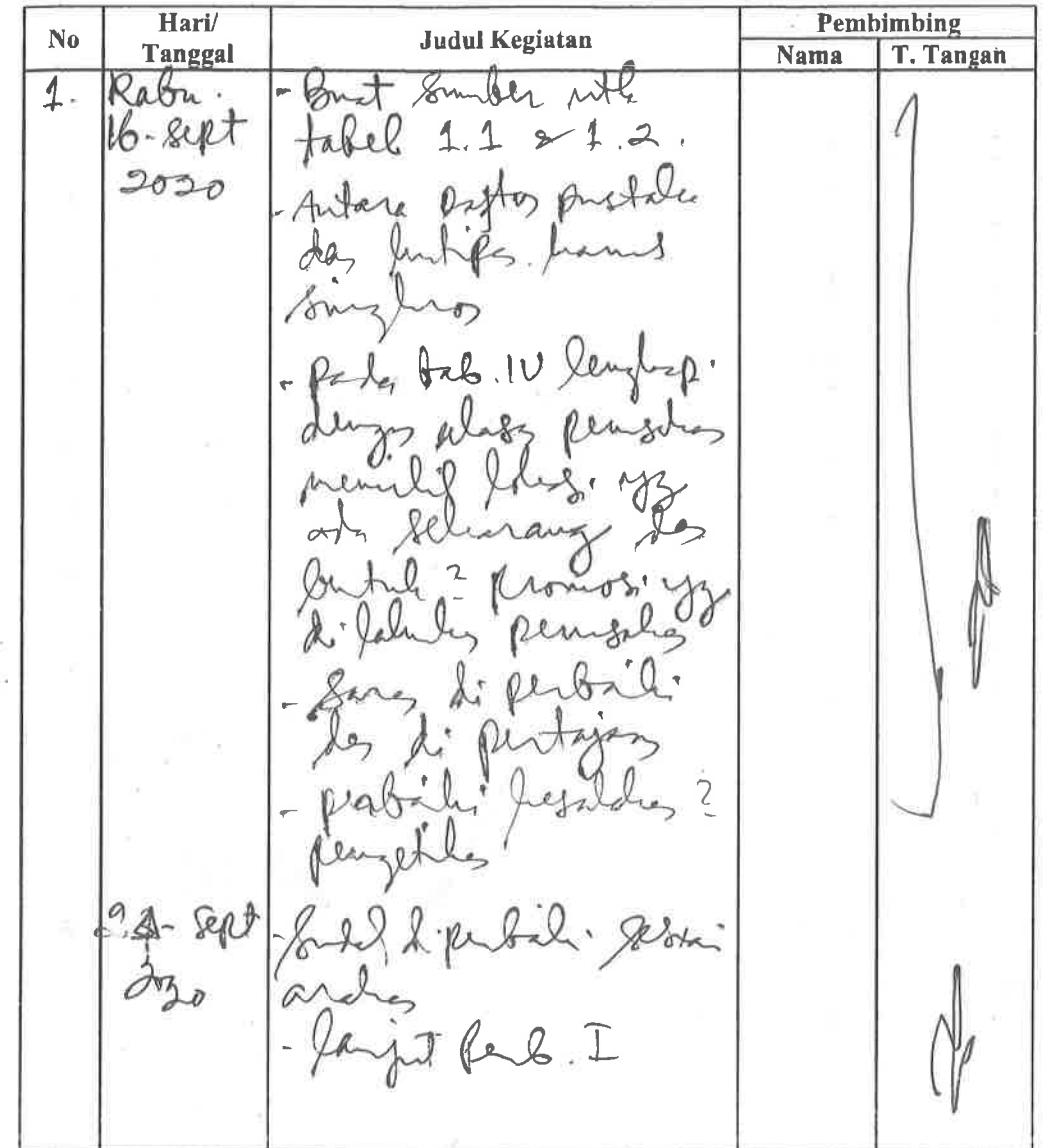 No
Hari/
Tanggal
Judul Kegiatan
Pembimbing
Nama
T. Tangan
1.
Rabu.
16-Sept
2020
- Buat Sumber utk
tabel 1.1 & 1.2.
- Antara Daftar pustaka
dan kutipan harus
singkron
- Pada bab. IV lengkapi
dengan alasan perusahaan
memilih lokasi yg
ada sekarang dan
bentuk2 promosi yg
di lakukan perusahaan
- Saran di perbaiki
dan di pertajam
- perbaiki kesalahan2
pengetikan
Sept
2020
- Sudah di perbaiki sesuai
arahan
- lanjut Pemb. I